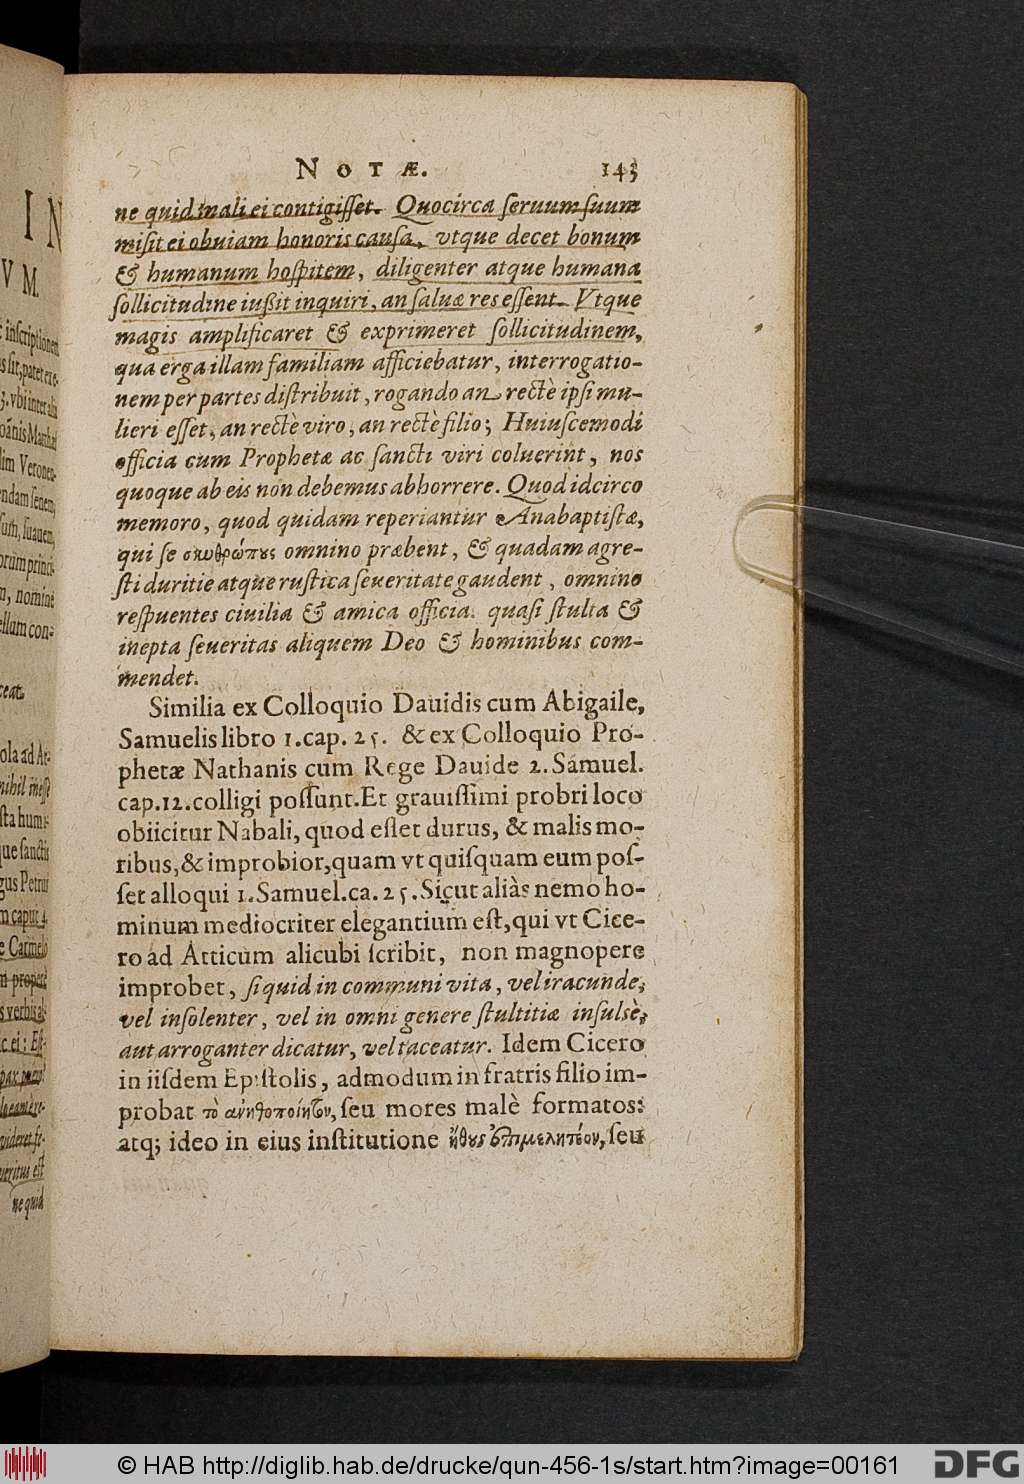 NOTÆ. 143
ne quid mali ei contigisset. Quocirca seruum suum
misit ei obuiam honoris causa, vtque decet bonum
& humanum hospitem, diligenter atque humana
sollicitudine iußit inquiri, an saluæ res essent. Vtque
magis amplificaret & exprimeret sollicitudinem,
qua erga illam familiam afficiebatur, interrogatio-
nem per partes distribuit, rogando an rectè ipsi mu-
lieri esset, an rectè viro, an rectè filio; Huiuscemodi
officia cum Prophetæ ac sancti viri coluerint, nos
quoque ab eis non debemus abhorrere. Quod idcirco
memoro, quod quidam reperiantur Anabaptistæ,
qui se σκυθρώπους omnino præbent, & quadam agre-
sti duritie atque rustica seueritate gaudent, omnino
respuentes ciuilia & amica officia. quasi stulta &
inepta seueritas aliquem Deo & hominibus com-
mendet.
Similia ex Colloquio Dauidis cum Abigaile,
Samuelis libro 1. cap. 25. & ex Colloquio Pro-
phetæ Nathanis cum Rege Dauide 2. Samuel.
cap. 12. colligi possunt. Et grauissimi probri loco
obiicitur Nabali, quod esset durus, & malis mo-
ribus, & improbior, quam vt quisquam eum pos-
set alloqui 1. Samuel. ca. 25. Sicut aliàs nemo ho-
minum mediocriter elegantium est, qui vt Cice-
ro ad Atticum alicubi scribit, non magnopere
improbet, si quid in communi vita, vel iracunde,
vel insolenter, vel in omni genere stultitiæ insulsè,
aut arroganter dicatur, vel taceatur. Idem Cicero
in iisdem Epistolis, admodum in fratris filio im-
probat τὸ ἀνηθοποίητον, seu mores malè formatos:
atq; ideo in eius institutione ἤθους ἐπιμελητέον, seu
IN
VM.
inscriptionem
sit, patet ex e-
3. vbi inter alia
Ioānis Matthæi
lim Veronen-
endam senem,
suauem,
orum princi-
n, nomine
ellum con-
ceat.
ola ad At-
nihil inesse
sta humi-
que sanctis
gus Petrus
m caput 4.
e Carmelo
m properè
s verbis al-
c ei: Est-
ne quid
© HAB http://diglib.hab.de/drucke/qun-456-1s/start.htm?image=00161
DFG